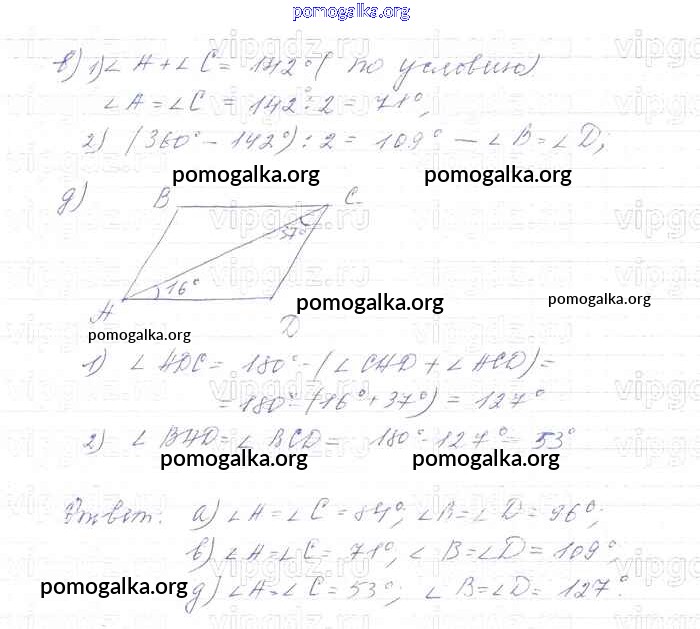 pomogalka.org
в) 1) ∠A + ∠C = 142° (по условию)
∠A = ∠C = 142° : 2 = 71°,
2) (360° - 142°) : 2 = 109° — ∠B = ∠D;
pomogalka.org pomogalka.org
д) B C
37°
16°
pomogalka.org pomogalka.org
A D
pomogalka.org
1) ∠ADC = 180° - (∠CAD + ∠ACD) =
= 180° - (16° + 37°) = 127°
2) ∠BAD = ∠BCD = 180° - 127° = 53°
pomogalka.org pomogalka.org
Ответ: а) ∠A = ∠C = 84°, ∠B = ∠D = 96°;
в) ∠A = ∠C = 71°, ∠B = ∠D = 109°;
pomogalka.org
д) ∠A = ∠C = 53°; ∠B = ∠D = 127°.